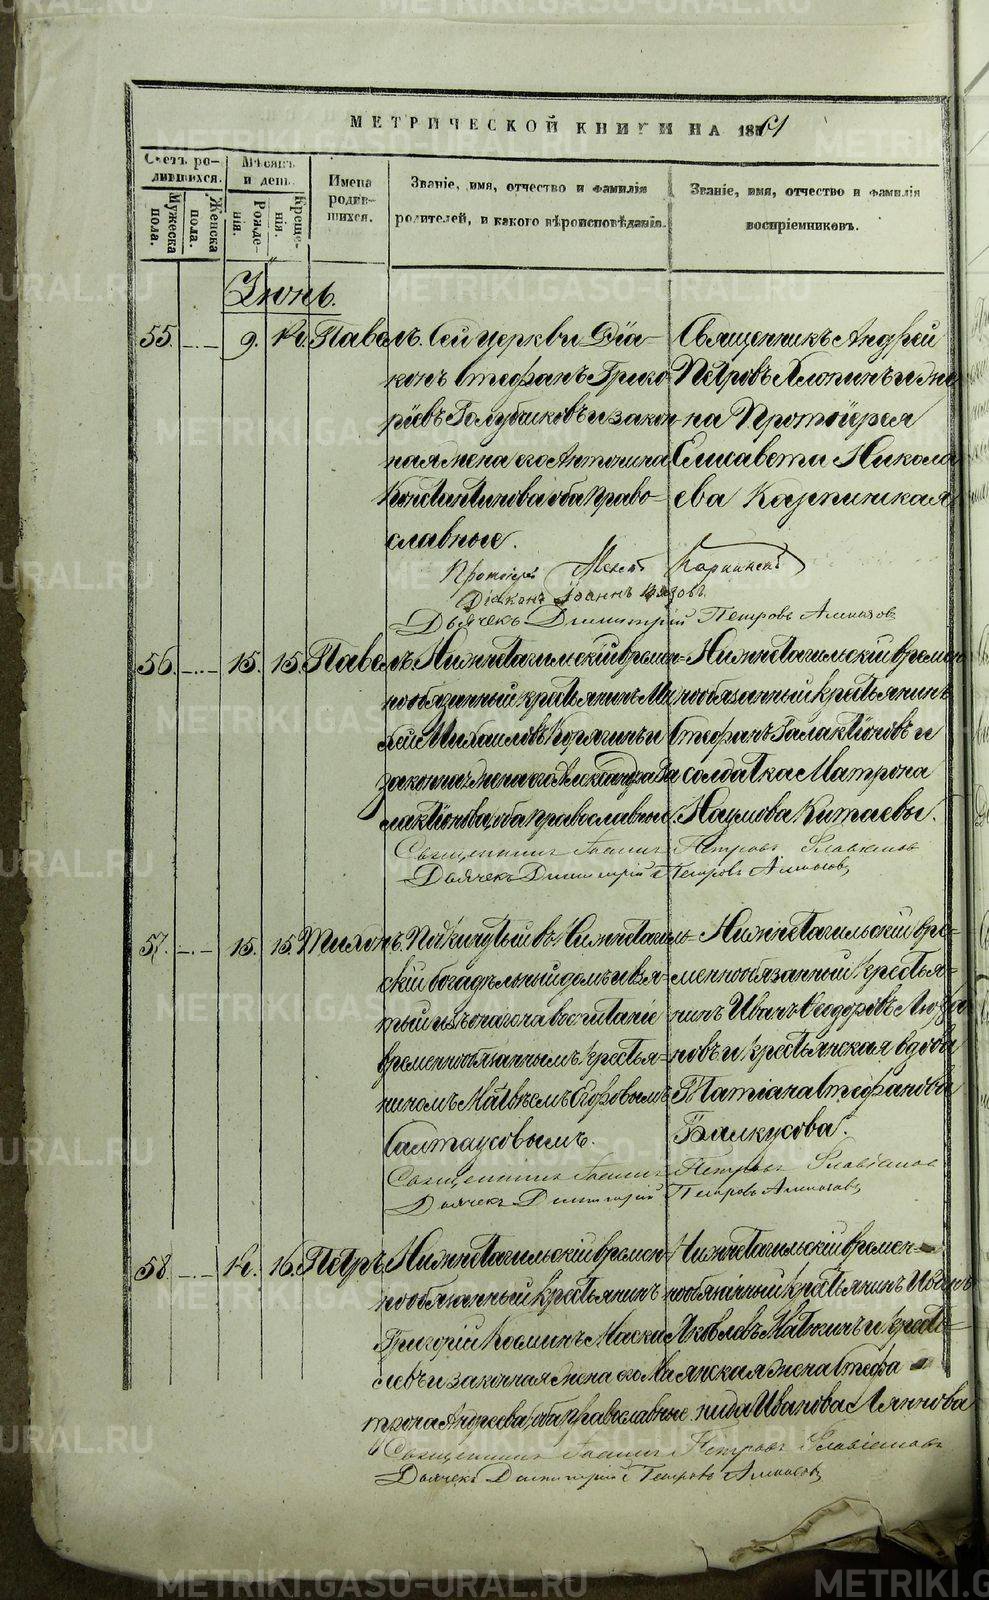 METRIKI.GASO-URAL.RU
МЕТРИЧЕСКОЙ КНИГИ НА 1861
Счетъ ро-
дившихся.
Мужеска пола.
Женска пола.
Мѣсяцъ
и день.
Рожде-
нія.
Креще-
нія.
Имена
родив-
шихся.
Званіе, имя, отчество и фамилія
родителей, и какого вѣроисповѣданія.
Званіе, имя, отчество и фамилія
воспріемниковъ.
Іюнь.
55. 9. Павелъ. Сей церкви Діа-
конъ Стефанъ Григо-
ріевъ Голубчиковъ и закон-
ная жена его Антонина
Константинова оба право-
славные.
Священникъ Андрей
Петровъ Хлопинъ и же-
на Протоіерея
Елисавета Никола
ева Карпинская
Протоіерей Карпинскій
Діаконъ Іоаннъ
Дьячекъ Димитрій Петровъ Алмазов
56. 15. 15. Павелъ. Нижнетагильскій времен-
нообязанный крестьянинъ Ми
хей Михаиловъ Корягинъ и
законная жена его Александра Га
лактіонова, оба православные.
Нижнетагильскій времен
нообязанный крестьянинъ
Стефанъ Галактіоновъ и
солдатка Матрона
Наумова Китаевы.
Священникъ Іоаннъ Петровъ Славніновъ
Дьячекъ Димитрій Петровъ Алмазов
57. 15. 15. Тихонъ. Подкинутый въ Нижнетагиль-
скій богадѣльный домъ и взя-
тый изъ онаго на воспитаніе
временнообязаннымъ крестья-
ниномъ Матвѣемъ Егоровымъ
Салтаусовымъ.
Нижнетагильскій вре-
меннообязанный крестья-
нинъ Иванъ Ѳеодоровъ
новъ и крестьянская вдова
Татіана Стефанова
Балкусова.
Священникъ Іоаннъ Петровъ
Дьячекъ Димитрій Петровъ Алмазов
58. 16. Петръ. Нижнетагильскій времен-
нообязанный крестьянинъ
Григорій Косминъ
евъ и законная жена его Ма
трона Андреева, оба православные.
Нижнетагильскій времен-
нообязанный крестьянинъ Иванъ
Яковлевъ и кресть-
янская жена Стефа
нида Иванова
Священникъ Іоаннъ Петровъ
Дьячекъ Димитрій Петровъ Алмазов